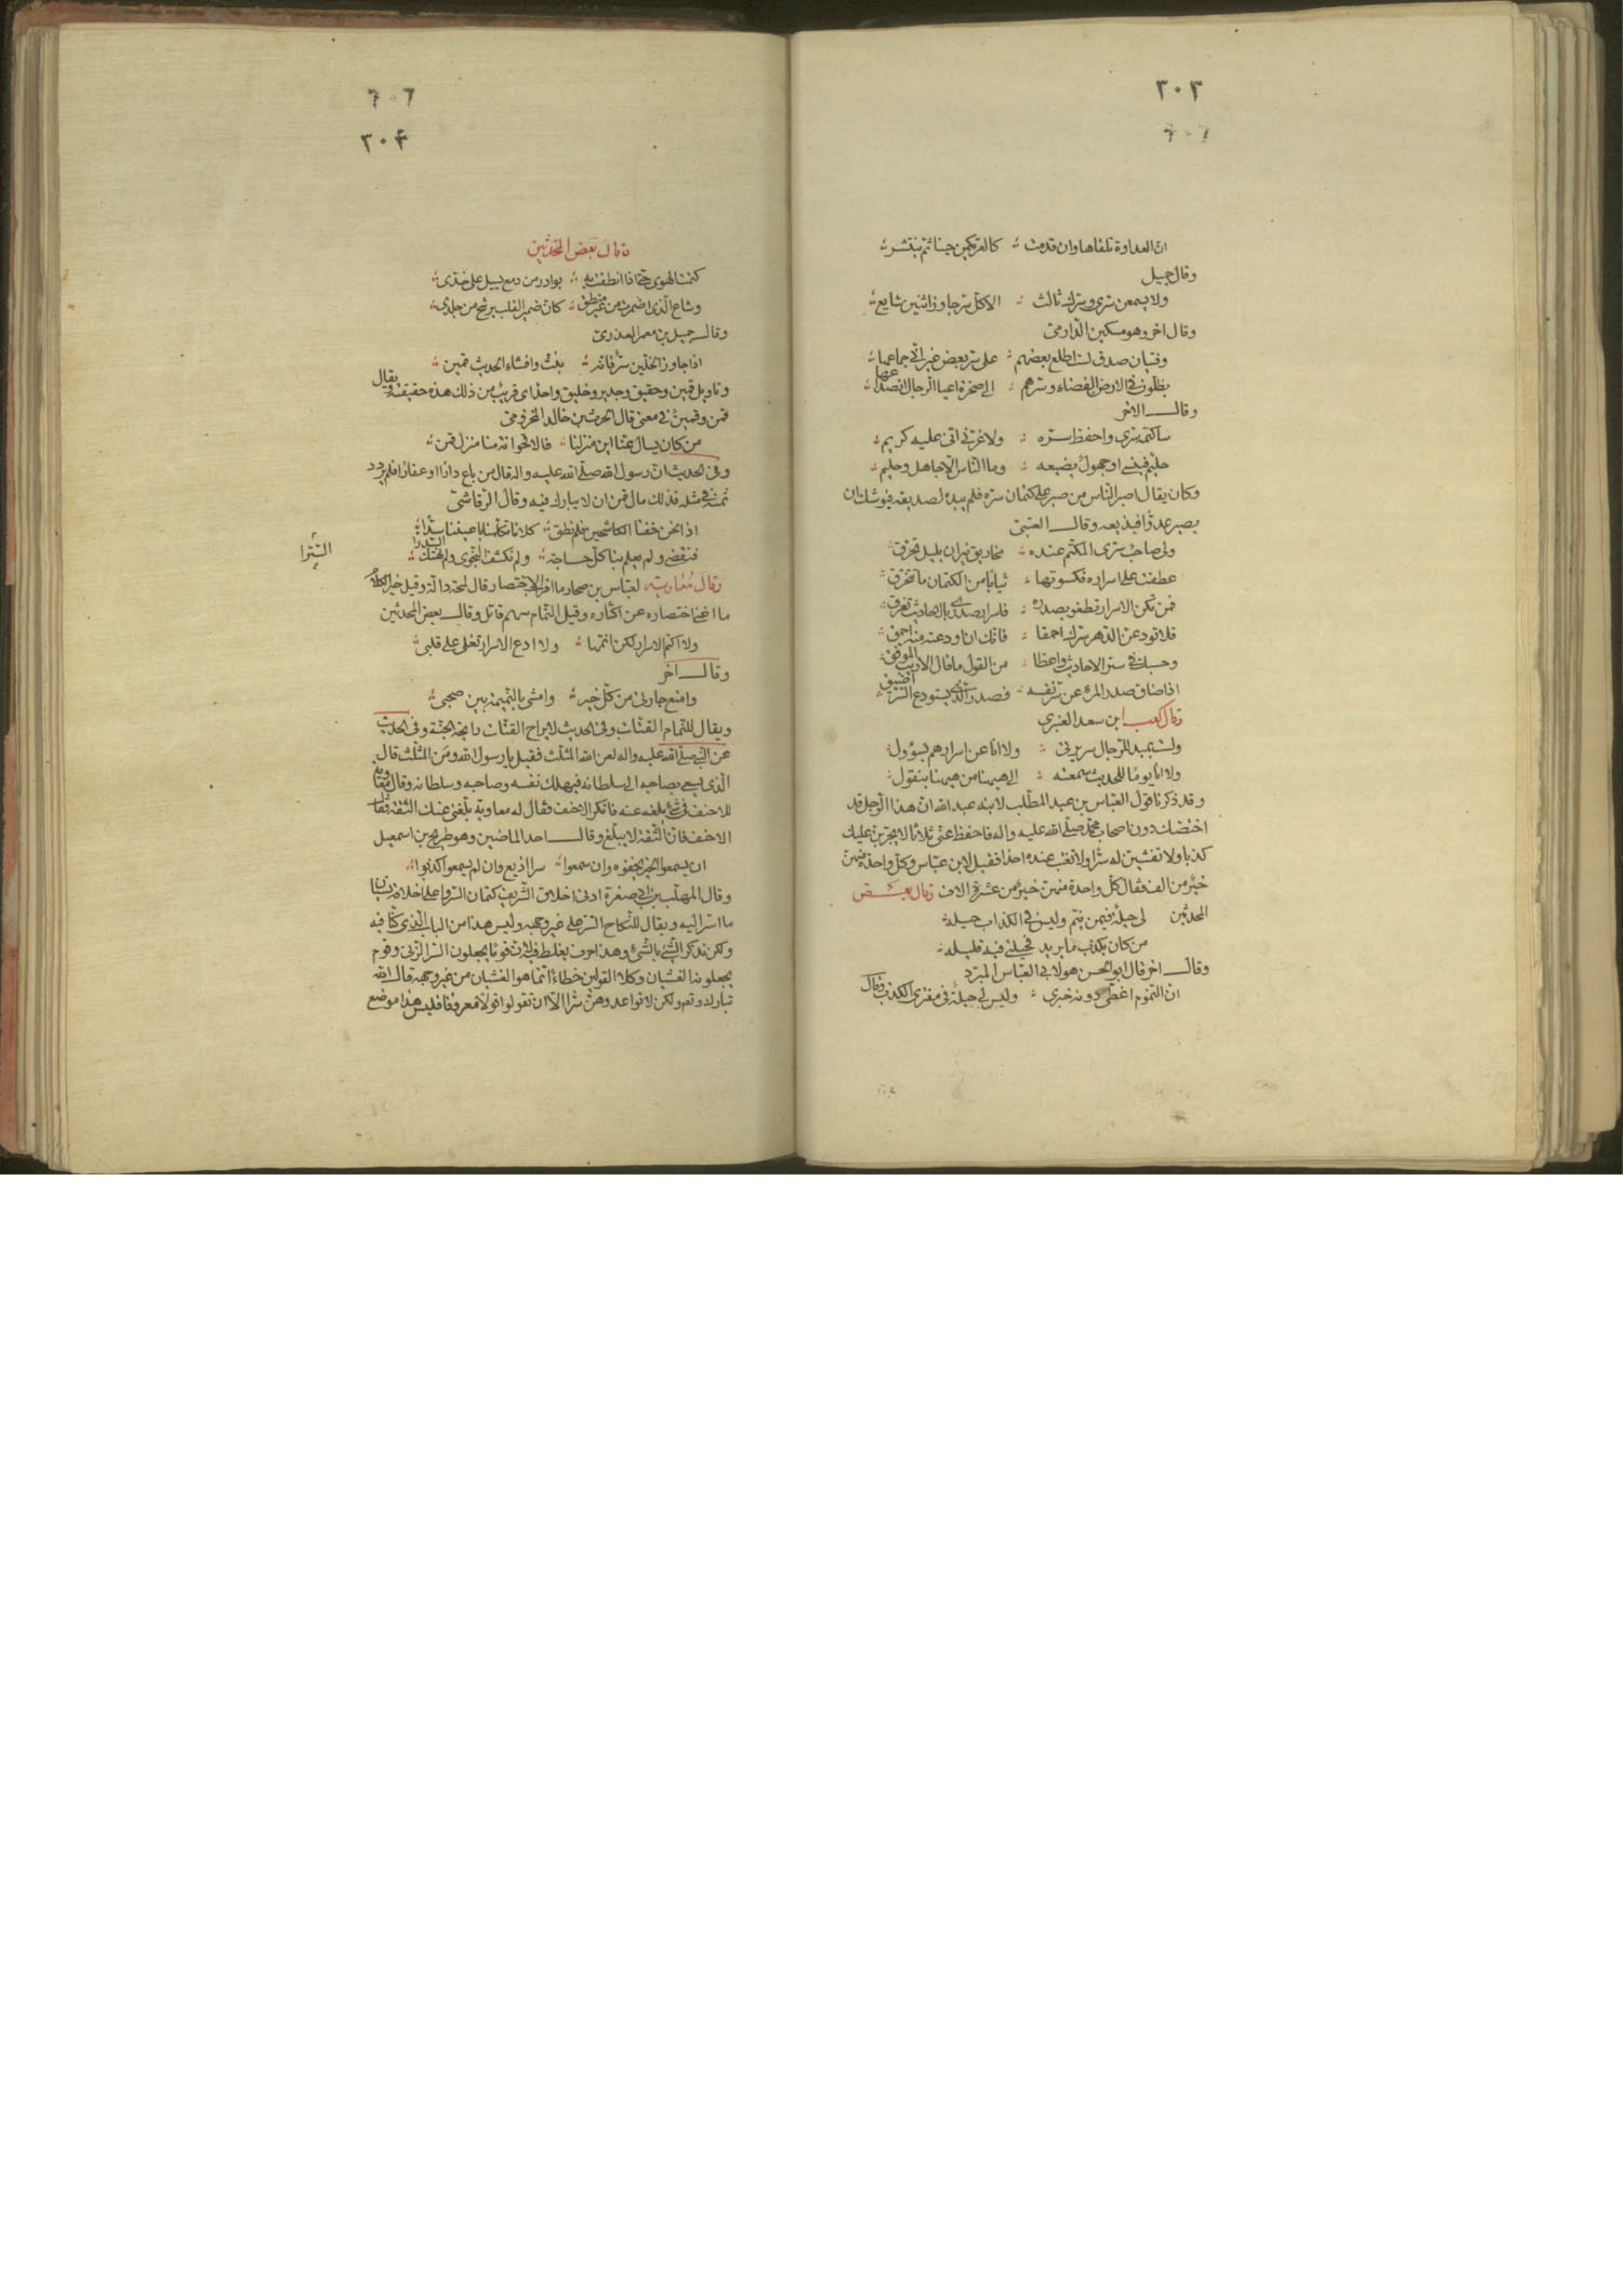 ٣٠٣
ان العداوة تلقاها وان قدمت كالعر يكمن حينا ثم ينتشر
وقال جميل
ولا يسمعن سري وسرك ثالث الا كل سر جاوز اثنين شايع
وقال اخر وهو مسكين الدارمي
وفتيان صدق لست اطلع بعضهم على سر بعض غير اني جماعها
يظلون في الارض الفضاء وسرهم الى صخرة اعيا الرجال انصداعها
وقال الاخر
ساكتمه سري واحفظ سره ولا غرني اني عليه كريم
حليم فينسى او جهول يضيعه وما الناس الا جاهل وحليم
وكان يقال اصبر الناس من صبر على كتمان سره فلم يبده لصديقه فيوشك ان
يصير عدوا فيذيعه وقال العتبي
ولي صاحب سري المكتم عنده مخاريق نيران بليل تحرق
عطفت على اسراره فكسوتها ثيابا من الكتمان ما تخرق
فمن تكن الاسرار تطفو بصدره فاسرار صدري بالاحاديث تغرق
فلا تودعن الدهر سرك احمقا فانك ان اودعته منه احمق
وحسبك في ستر الاحاديث واعظا من القول ما قال الاديب الموفق
اذا ضاق صدر المرء عن سر نفسه فصدر الذي يستودع السر اضيق
وقال كعب ابن سعد الغنوي
ولست بمبد للرجال سريرتي ولا انا عن اسرارهم بسؤول
ولا انا يوما للحديث سمعته الى هيهنا من هيهنا بنقول
وقد ذكرنا قول العباس بن عبد المطلب لابنه عبد الله ان هذا الرجل قد
اختصك دون اصحاب محمد صلى الله عليه واله فاحفظ عني ثلاثا لا يجربن عليك
كذبا ولا تفشين له سرا ولا تغتب عنده احدا فقيل لابن عباس وكل واحدة منهن
خير من الف فقال كل واحدة منهن خير من عشرة الاف وقال بعض
المحدثين لي حيلة فيمن ينم وليس في الكذاب حيلة
من كان يكذب ما يريد فحيلتي فيه قليله
وقال اخر قال ابو الحسن هو لابي العباس المبرد
ان النموم اغطي دونه خبري وليس لي حيلة في مفتري الكذب وقال
٣٠۴
وقال بعض المحدثين
كتمت الهوى حتى اذا نطقت به بوادر من دمع يسيل على خدي
وشاع الذي اضمرت من غير منطق كان ضمير القلب يرشح من جلدي
وقال جميل بن معمر العذري
اذا جاوز الخلين سر فانه بنث وافشاء الحديث قمين
وتاويل قمين وحقيق وجدير وخليق واحد اي قريب من ذلك هذه حقيقته يقال
قمن وقمين في معنى قال الحرث بن خالد المخزومي
من كان يسال عنا اين منزلنا فالاقحوانة منا منزل قمن
وفي الحديث ان رسول الله صلى الله عليه واله قال من باع دارا او عقارا فلم يردد
ثمنه في مثله فذلك مال قمن ان لا يبارك فيه وقال الرقاشي
اذا نحن خفنا الكاشحين فلم نطق كلاما تكلمنا باعيننا سرا
فنقضي ولم يعلم بنا كل حاجة ولم نكشف النجوى ولم نهتك السترا
السترا
وقال معاوية لعباس بن صحار ما اقرب الاختصار قال لمحة دالة وقيل خير الكلام
ما اغنى اختصاره عن اكثاره وقيل النمام سهم قاتل وقال بعض المحدثين
ولا اكتم الاسرار لكن انمها ولا ادع الاسرار تغلي على قلبي
وقال اخر
وامنع جارتي من كل خير وامشي بالنميمة بين صحبي
ويقال للنمام القتات وفي الحديث لا يراح القتات رايحة الجنة وفي الحديث
عن النبي صلى الله عليه واله لعن الله المثلث فقيل يا رسول الله ومن المثلث قال
الذي يسعى بصاحبه الى سلطانه فيهلك نفسه وصاحبه وسلطانه وقال معاوية
للاحنف في شيء بلغه عنه فانكر الاحنف فقال له معاوية بلغني عنك الثقة فقال
الاحنف فان الثقة لا يبلغ وقال احد الماضين وهو طريح بن اسمعيل
ان يسمعوا الخير يخفوه وان سمعوا سرا اذيع وان لم يسمعوا كذبوا
وقال المهلب بن ابي صفرة ادنى اخلاق الشريف كتمان السر واعلى اخلاقه نسيان
ما اسر اليه ويقال للنكاح السر على غير وجهه وليس هذا من الباب الذي كنا فيه
ولكن نذكر الشيء بالشيء وهذا حرف يغلط فيه لان قوما يجعلون السر الزنى وقوم
يجعلونه الغشيان وكلا القولين خطاء انما هو الغشيان من غير وجهه قال الله
تبارك وتعم ولكن لا تواعدوهن سرا الا ان تقولوا قولا معروفا فليس هذا موضع